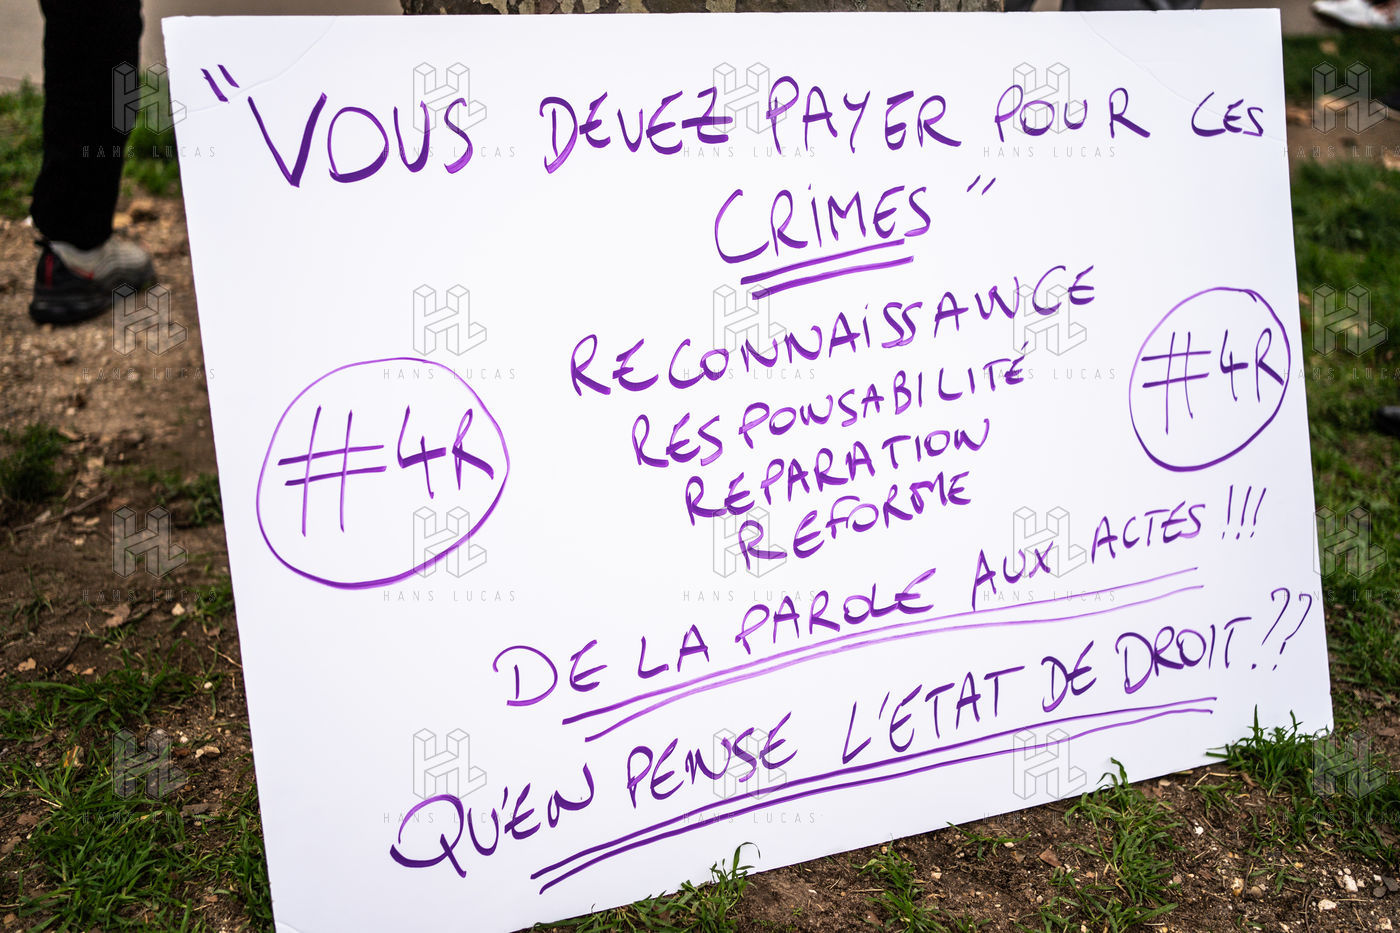 "VOUS DEVEZ PAYER POUR CES
CRIMES"
RECONNAISSANCE
RESPONSABILITÉ
RÉPARATION
REFORME
#4R
#4R
DE LA PAROLE AUX ACTES!!!
QU'EN PENSE L'ÉTAT DE DROIT.??
HANS LUCAS